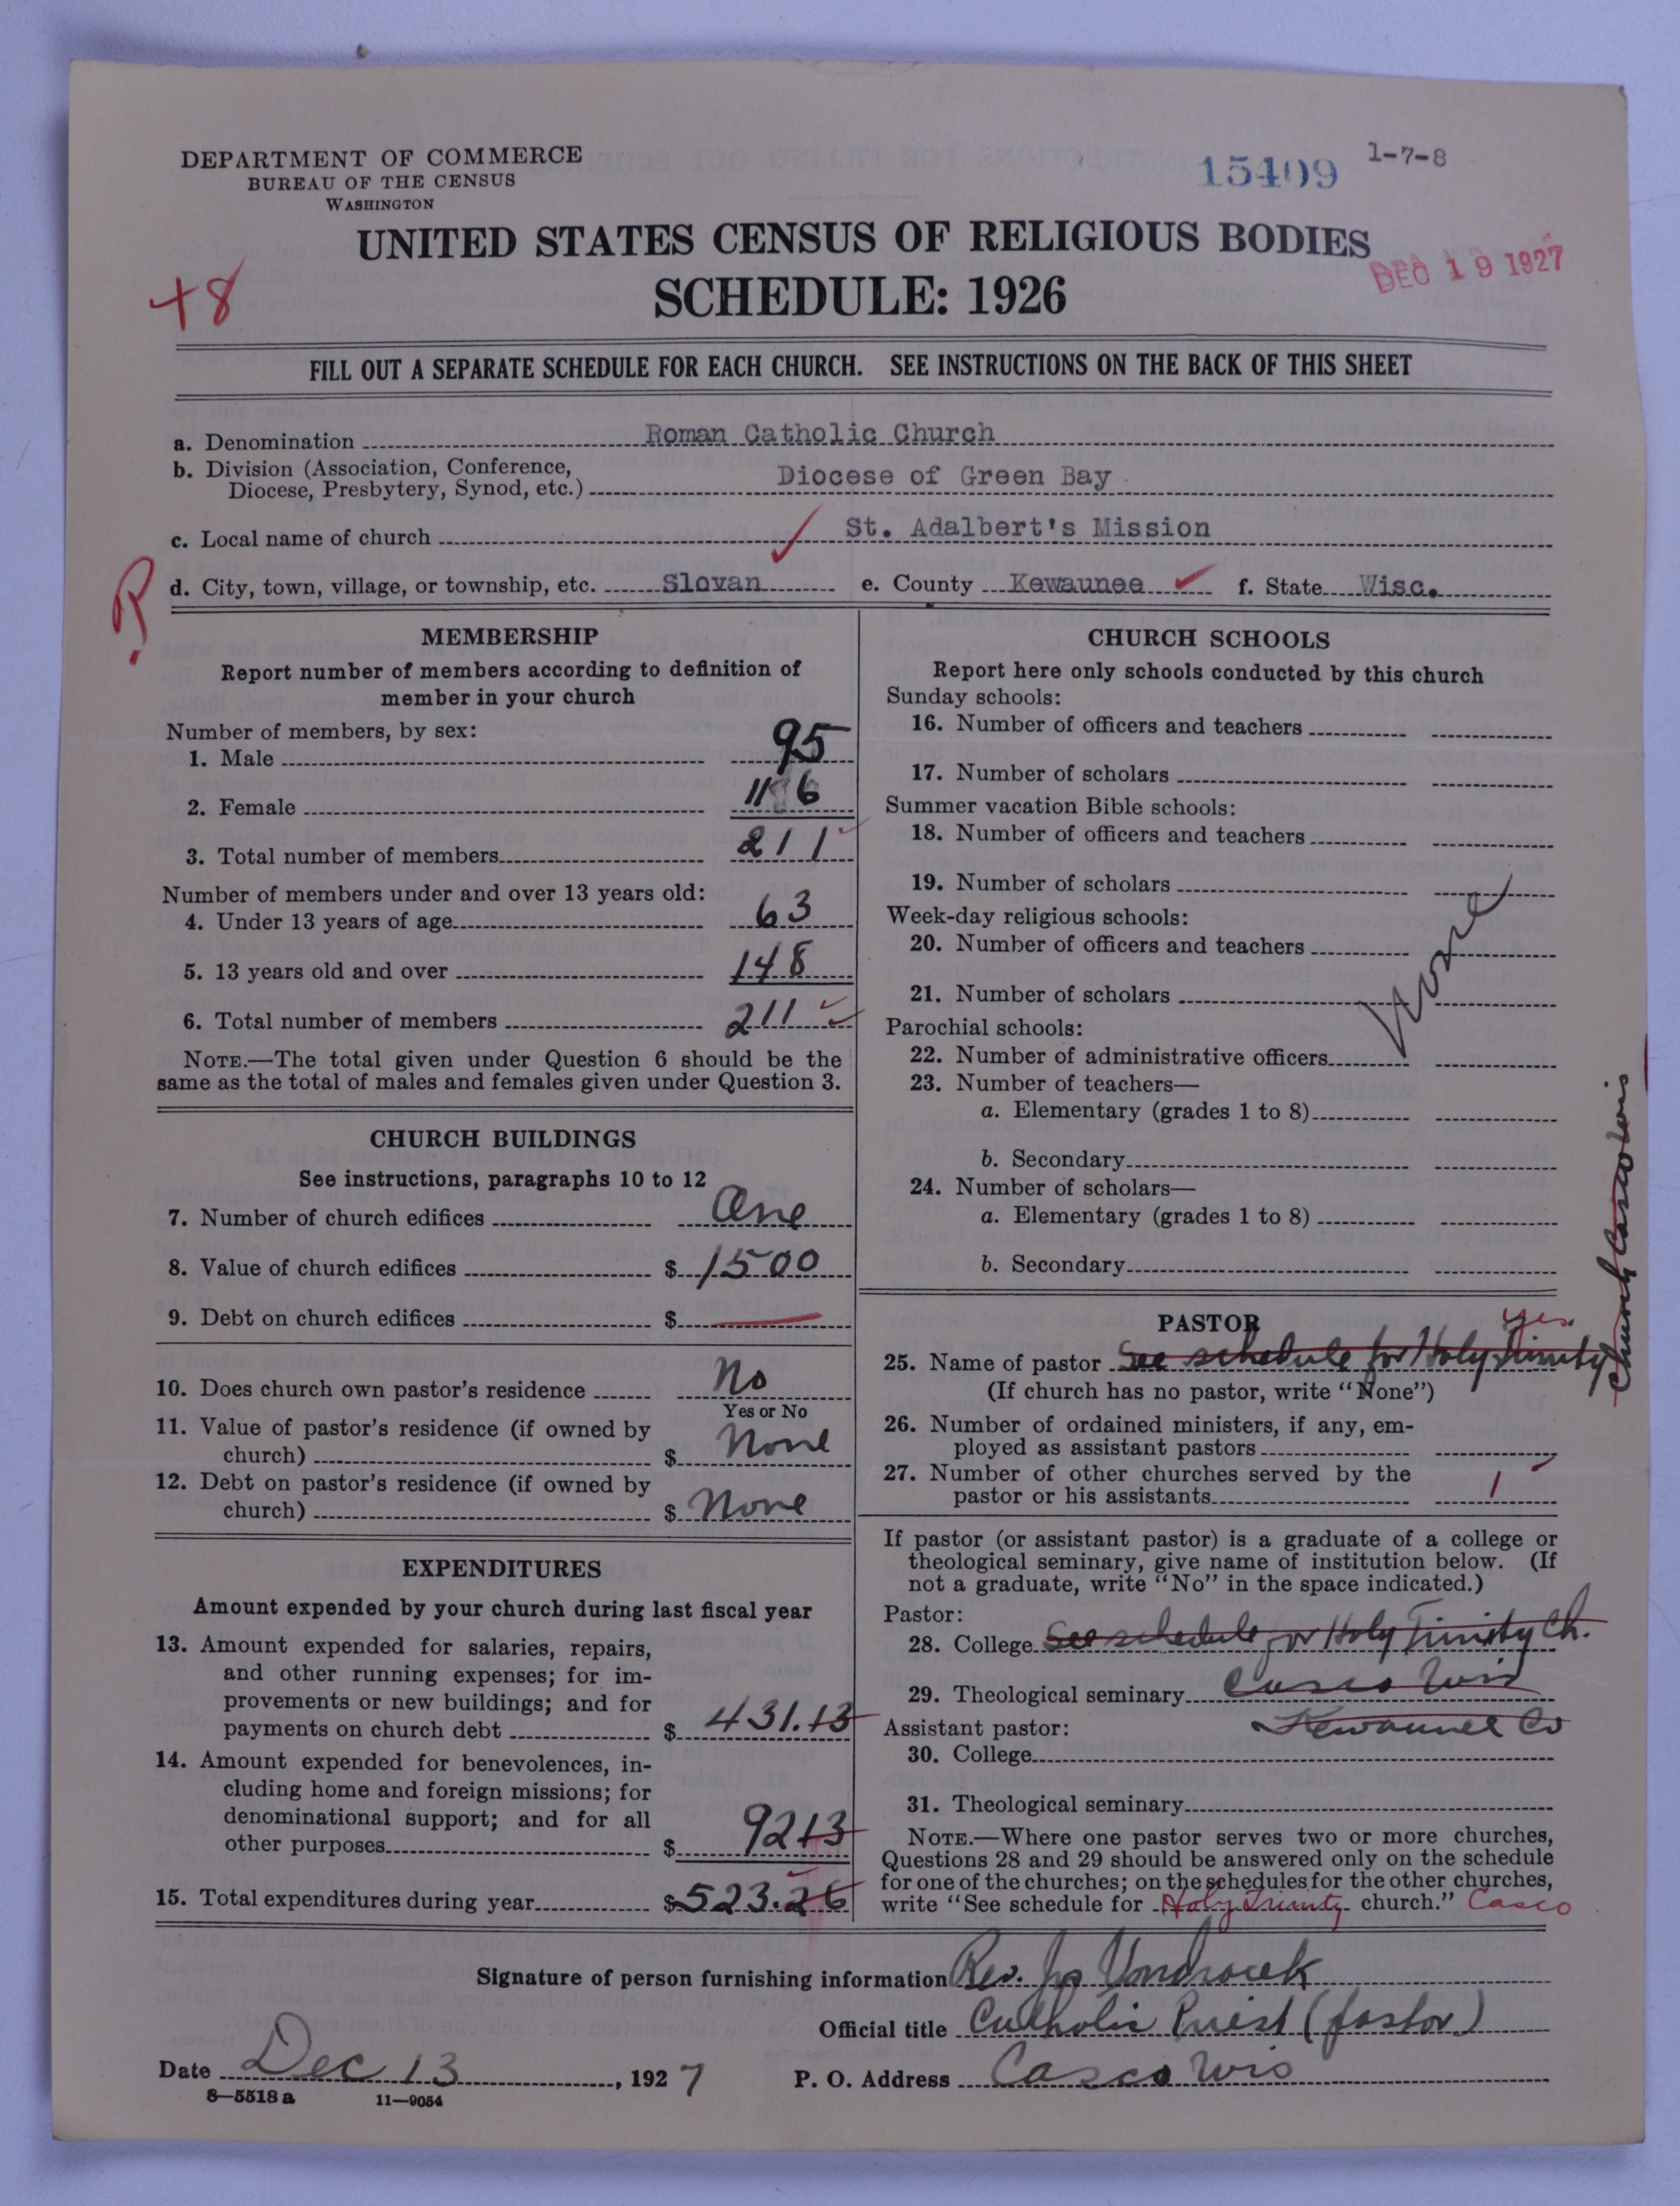 DEPARTMENT OF COMMERCE
BUREAU OF THE CENSUS
WASHINGTON
15409
1-7-8
UNITED STATES CENSUS OF RELIGIOUS BODIES
SCHEDULE: 1926
DEC 19 1927
+8
FILL OUT A SEPARATE SCHEDULE FOR EACH CHURCH. SEE INSTRUCTIONS ON THE BACK OF THIS SHEET
a. Denomination Roman Catholic Church
b. Division (Association, Conference,
Diocese, Presbytery, Synod, etc.) Diocese of Green Bay
c. Local name of church St. Adalbert's Mission
d. City, town, village, or township, etc. Slovan e. County Kewaunee f. State Wisc.
MEMBERSHIP
Report number of members according to definition of
member in your church
Number of members, by sex:
1. Male 95
2. Female 116
3. Total number of members 211
Number of members under and over 13 years old:
4. Under 13 years of age 63
5. 13 years old and over 148
6. Total number of members 211
NOTE.—The total given under Question 6 should be the
same as the total of males and females given under Question 3.
CHURCH BUILDINGS
See instructions, paragraphs 10 to 12
7. Number of church edifices One
8. Value of church edifices $ 1500
9. Debt on church edifices $ —
10. Does church own pastor's residence No
Yes or No
11. Value of pastor's residence (if owned by
church) $ None
12. Debt on pastor's residence (if owned by
church) $ None
EXPENDITURES
Amount expended by your church during last fiscal year
13. Amount expended for salaries, repairs,
and other running expenses; for im-
provements or new buildings; and for
payments on church debt $ 431.13
14. Amount expended for benevolences, in-
cluding home and foreign missions; for
denominational support; and for all
other purposes $ 9213
15. Total expenditures during year $523.26
CHURCH SCHOOLS
Report here only schools conducted by this church
Sunday schools:
16. Number of officers and teachers
17. Number of scholars
Summer vacation Bible schools:
18. Number of officers and teachers
19. Number of scholars
Week-day religious schools:
20. Number of officers and teachers
21. Number of scholars
None
Parochial schools:
22. Number of administrative officers
23. Number of teachers—
a. Elementary (grades 1 to 8)
b. Secondary
24. Number of scholars—
a. Elementary (grades 1 to 8)
b. Secondary
PASTOR
yes
25. Name of pastor See schedule for Holy Trinity
Church Casco Wis
(If church has no pastor, write "None")
26. Number of ordained ministers, if any, em-
ployed as assistant pastors
27. Number of other churches served by the
pastor or his assistants 1
If pastor (or assistant pastor) is a graduate of a college or
theological seminary, give name of institution below. (If
not a graduate, write "No" in the space indicated.)
Pastor:
28. College See schedule for Holy Trinity Ch.
29. Theological seminary Casco Wis
Assistant pastor: Kewaunee Co
30. College
31. Theological seminary
NOTE.—Where one pastor serves two or more churches,
Questions 28 and 29 should be answered only on the schedule
for one of the churches; on the schedules for the other churches,
write "See schedule for Holy Trinity church." Casco
Signature of person furnishing information Rev.
Official title Catholic Priest (pastor)
Date Dec 13, 1927 P. O. Address Casco Wis
8—5518 a 11—9054